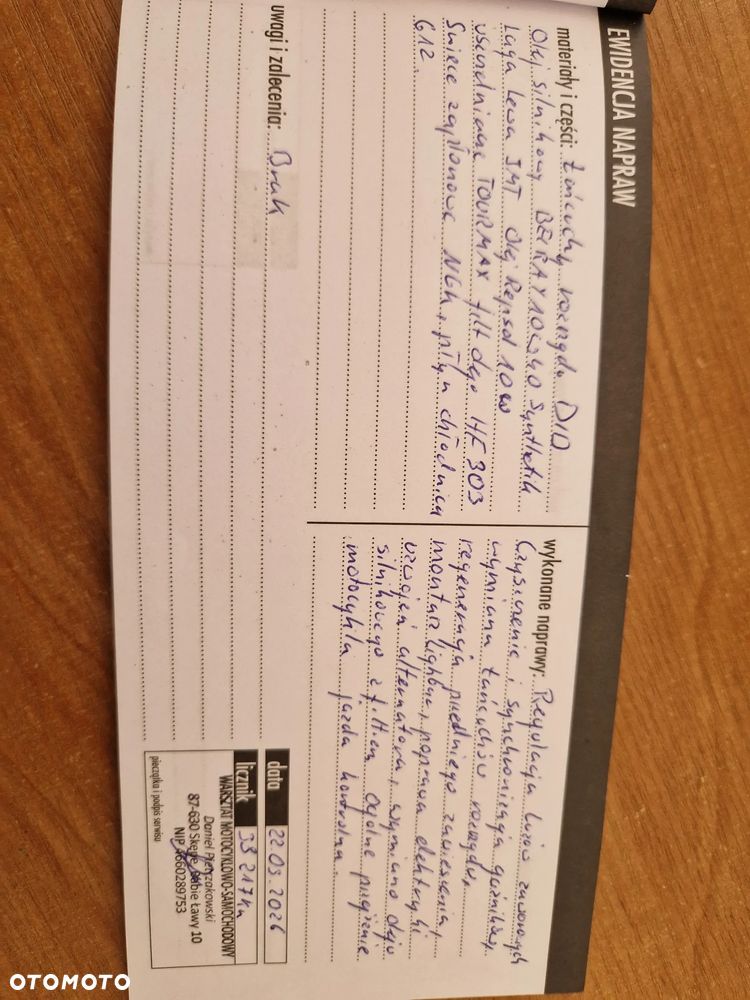 EWIDENCJA NAPRAW
materiały i części: Łańcuchy rozrządu DID
Olej silnikowy BELRAY 10W40 Synthetik
Laga Lewa JMT Olej Repsol 10W
uszczelniacze TOURMAX filt oleju HF303
Świece zapłonowe NGK, płyn chłodnicy
G12.
uwagi i zalecenia: Brak
wykonane naprawy: Regulacja luzów zaworowych
Czyszczenie i synchronizacja gaźników,
wymiana łańcuchów rozrządu,
regeneracja przedniego zawieszenia,
montaż, poprawa elektryki
uzwojeń alternatora, wymiana oleju
silnikowego z filtrem Ogólne przejrzenie
motocykla jazda kontrolna.
data 22.03.2026
licznik 39 217km
WARSZTAT MOTOCYKLOWO-SAMOCHODOWY
Daniel Pietrzakowski
87-630 Skępe, Babie Ławy 10
NIP 4660289753
pieczątka i podpis serwisu
OTOMOTO